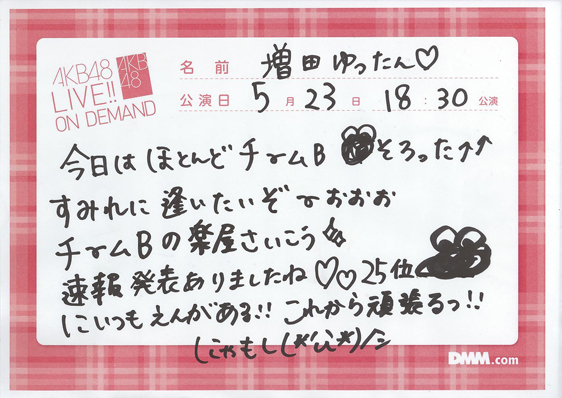 AKB48
LIVE!!
ON DEMAND
AKB
48
名前 増田ゆったん♡
公演日 5月23日 18:30公演
今日はほとんどチームB そろった↑↑
すみれに逢いたいぞーおおお
チームBの楽屋さいこう
速報発表ありましたね♡♡25位
にいつもえんがある!! これから頑張るっ!!
DMM.com